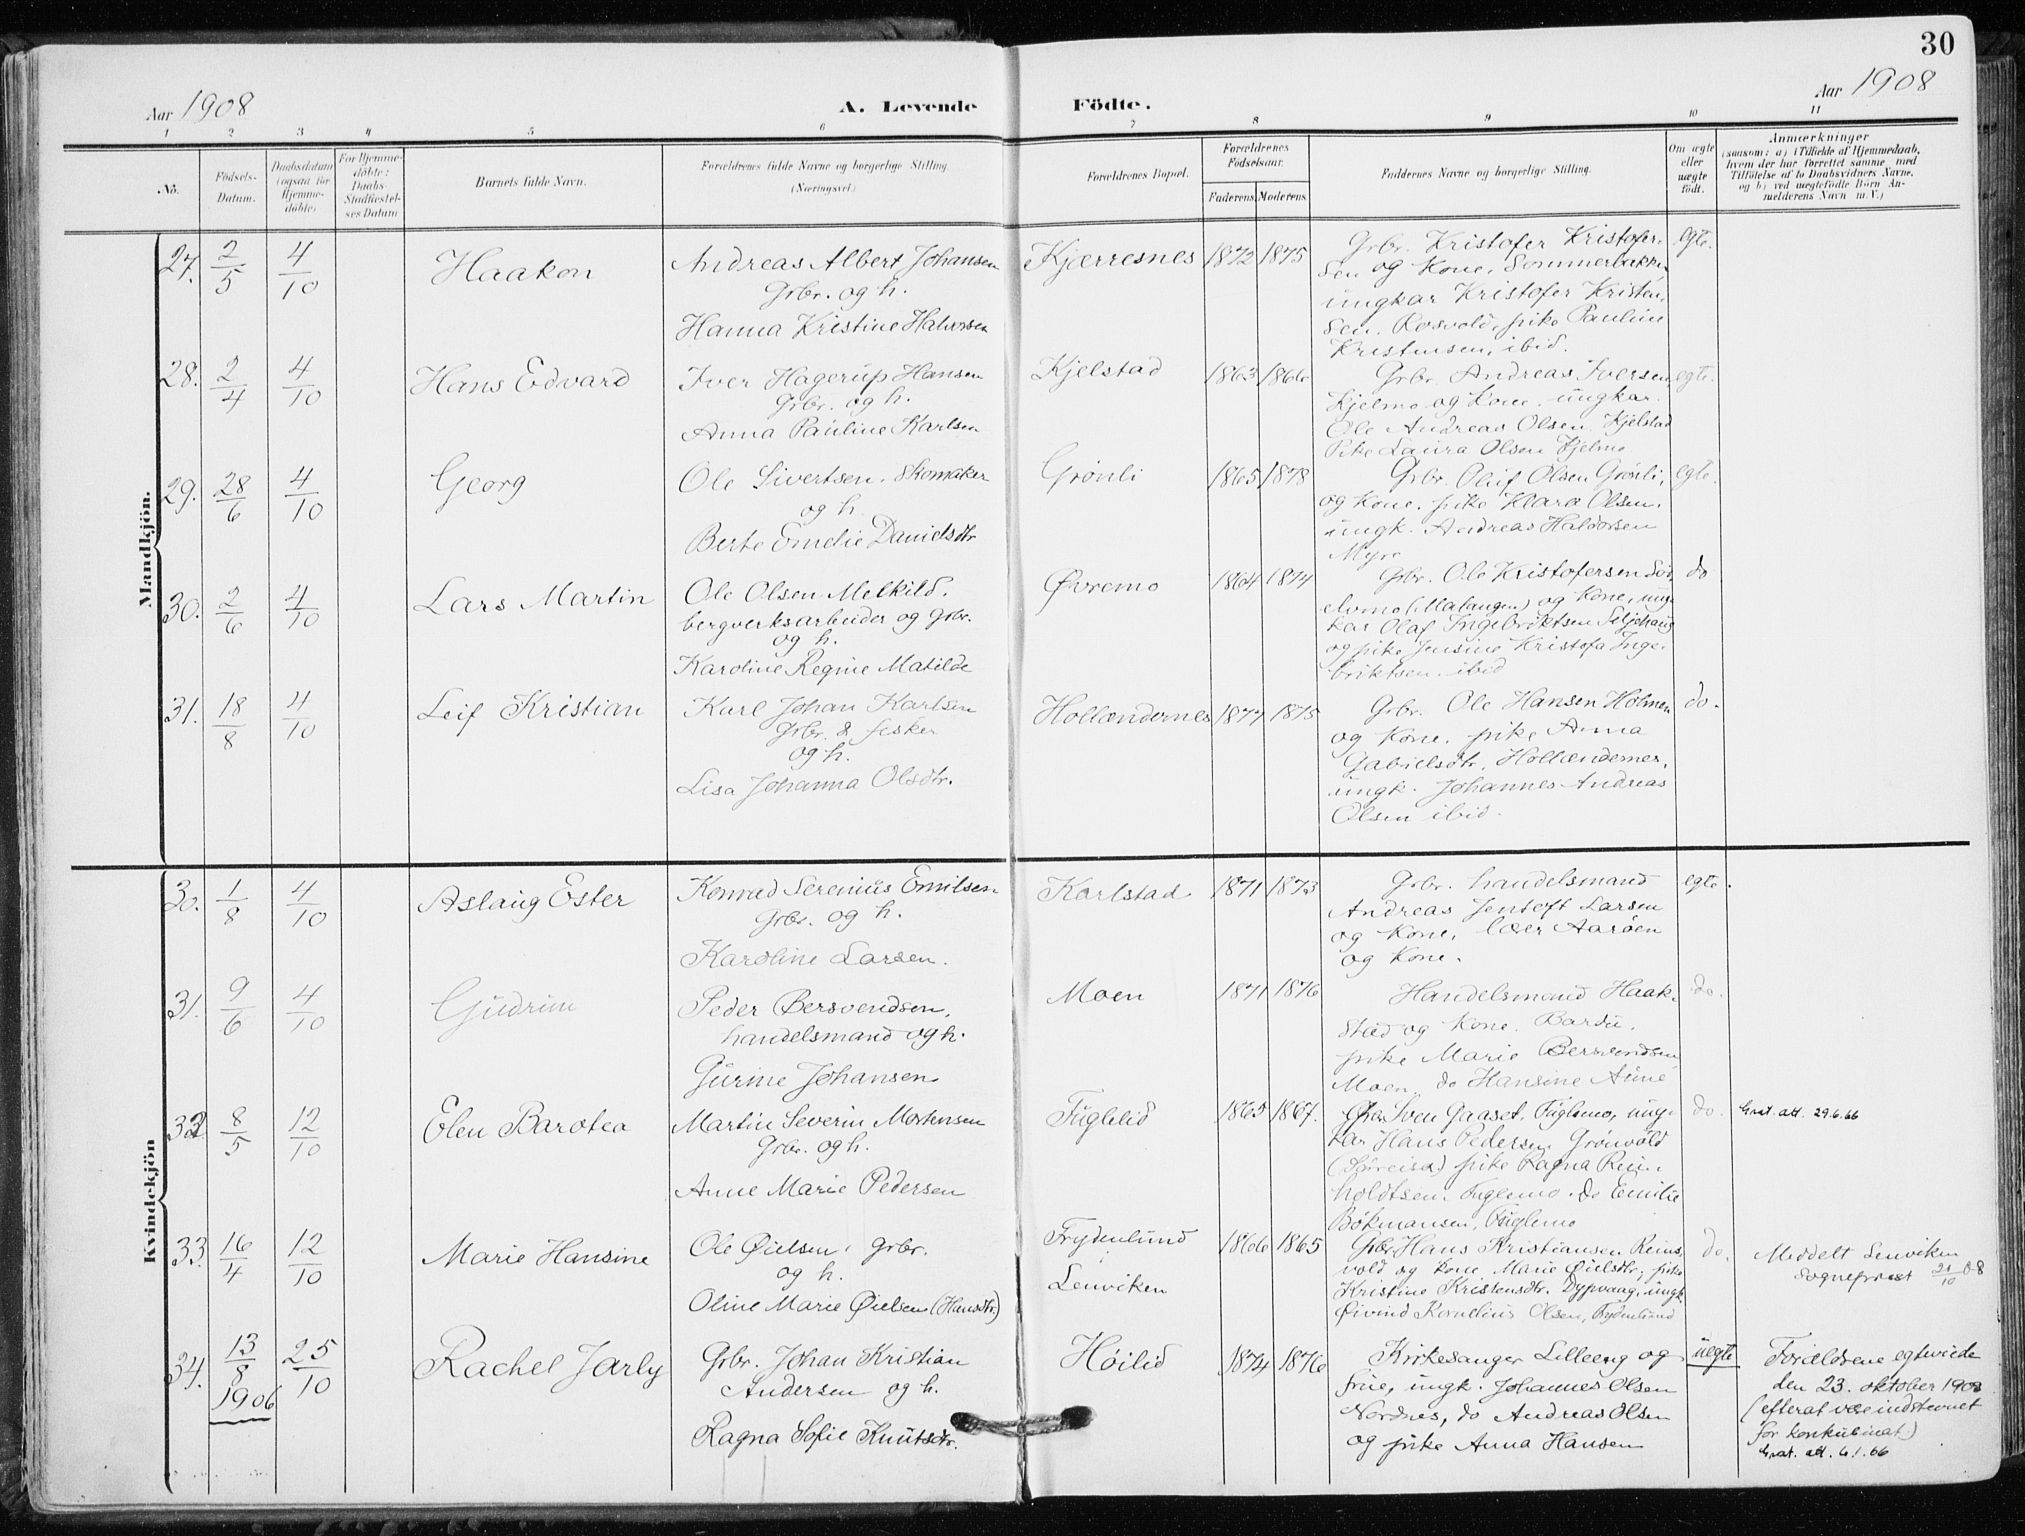 30
Aar 1908
A. Levende Födte.
Aar 1908
1 2 3 4 5 6 7 8 9 10 11
No.
Födsels-
Datum.
Daabsdatum
(ogsaa for
Hjemme-
döbte)
For Hjemme-
döbte:
Daabs-
Stadfæstel-
ses Datum
Barnets fulde Navn.
Forældrenes fulde Navne og borgerlige Stilling.
(Næringsvei)
Forældrenes Bopæl.
Forældrenes
Födselsaar.
Faderens Moderens
Faddernes Navne og borgerlige Stilling.
Om ægte
eller
uægte
född.
Anmærkninger
(saasom: a) i Tilfælde af Hjemmedaab,
hvem der har forrettet samme, med
Tilföielse af to Daabsvidners Navne,
og b) ved uægtefödte Börn An-
melderens Navn m.V.)
Mandkjön.
27. 2/5 4/10 Haakon
Andreas Albert Johansen
Grbr. og h.
Hanna Kristine Halvorsen
Kjærresnes 1872 1875
Grbr. Kristofer Kristofer-
sen og Kone, Sommerbakken
ungkar Kristofer Kristen-
sen. Rosvold, pike Pauline
Kristensen, ibid.
egte.
28. 2/4 4/10 Hans Edvard
Iver Hagerup Hansen
Grbr. og h.
Anna Pauline Karlsen
Kjelstad 1863 1866
Grbr. Andreas Iversen
Kjelmo og Kone, ungkar
Ole Andreas Olsen Kjelstad
Pike Laura Olsen Kjelmo
egte.
29. 28/6 4/10 Georg
Ole Sivertsen. Skomaker
og h.
Berte Emelie Danielsdtr
Grönli 1865 1878
Grbr. Olaf Olsen Grönli,
og Kone, pike Klara Olsen,
ungk. Andreas Haldorsen
Myre
egte.
30. 2/6 4/10 Lars Martin
Ole Olsen Melkild.
bergverksarbeider og Grbr.
og h.
Karoline Regine Matilde
Øvremo 1864 1874
Grbr. Ole Kristofersen
(Malangen) og Kone, ung-
kar Olaf Ingebriktsen Seljehaug
og pike Jensine Kristofa Inge-
briktsen ibid
do
31. 18/8 4/10 Leif Kristian
Karl Johan Karlsen
Grbr. & fisker
og h.
Lisa Johanna Olsdtr.
Hollændernes 1877 1875
Grbr. Ole Hansen Holmen
og Kone, pike Anna
Gabrielsdtr, Hollændernes,
ungk. Johannes Andreas
Olsen ibid.
do.
Kvindekjön
30. 1/8 4/10 Aslaug Ester
Konrad Serenius Emilsen
Grbr. og h.
Karoline Larsen.
Karlstad 1871 1873
Grbr. handelsmand
Andreas Jentoft Larsen
og Kone, lærer Aaröen
og Kone.
egte.
31. 9/6 4/10 Gudrun
Peder Bersvendsen,
handelsmand og h.
Gurine Johansen
Moen 1871 1876
Handelsmand Haak-
stad og Kone. Bardu,
pike Marie Bersvendsen
Moen, do Hansine Aune
do.
32 8/5 12/10 Elen Barotea
Martin Severin Mortensen
Grbr. og h.
Anne Marie Pedersen
Fuglelid 1865 1867.
Grbr. Sven Gaaset, Fuglemo, ung-
kar Hans Pedersen Grönvold
(Sörreisa) pike Ragna Rein-
holdtsen. Fuglemo. do Emilie
Bökmansen, Fuglemo
do.
Grat. att. 29.6.66
33. 16/4 12/10 Marie Hansine
Ole Øielsen, Grbr.
og h.
Oline Marie Øielsen (Hansdtr)
Frydenlund
Lenviken 1866 1865
Grbr. Hans Kristiansen Reins-
vold og Kone Marie Øielsdtr; pike
Kristine Kristensdtr. Dypvaag, ungk.
Øivind Kornelius Olsen, Frydenlund
do.
Meddelt Lenviken
sogneprest 21/10 08
34. 13/8 1906 25/10 Rachel Jarly
Grbr. Johan Kristian
Andersen og h.
Ragna Sofie Knutsdtr.
Höilid 1874 1876
Kirkesanger Lilleeng og
frue, ungk. Johannes Olsen
Nordnes, do Andreas Olsen
og pike Anna Hansen
uegte
Forældrene egteviede
den 23. oktober 1908
(efterat være indstevnet
for konkubinat)
Grat. att. 6.1.66